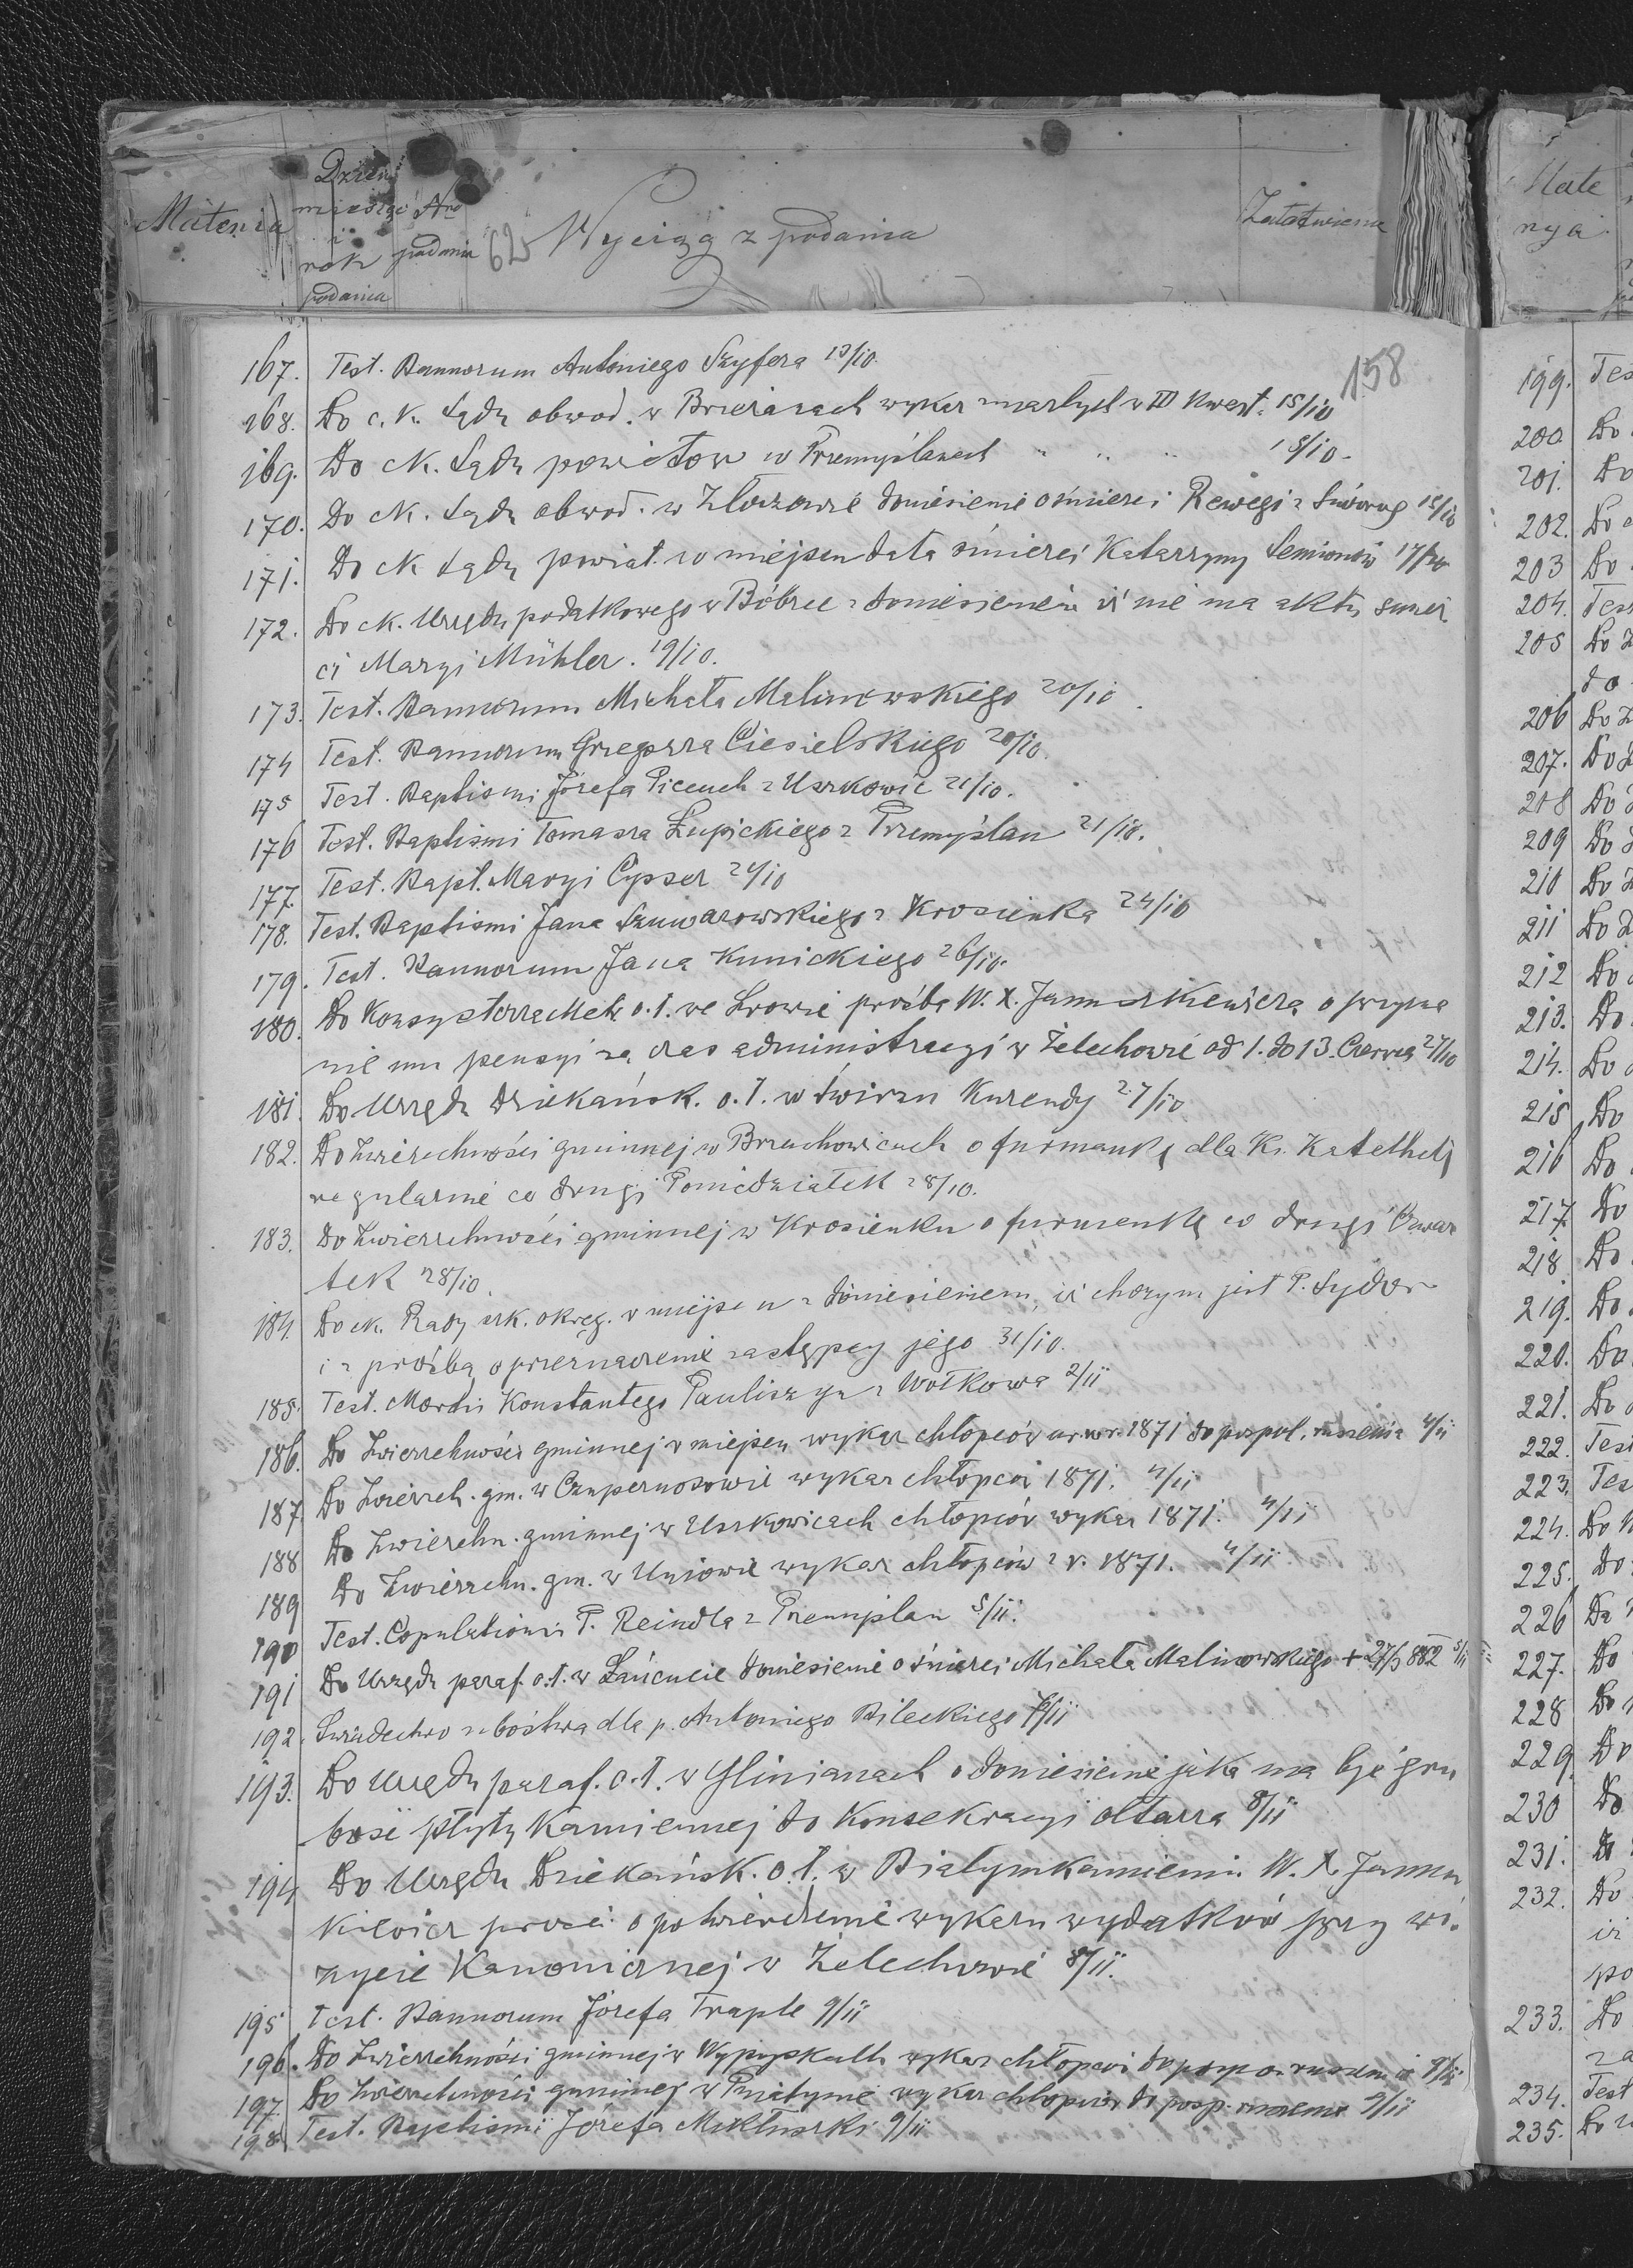 Materia
Dzień
miesiąc
i
rok
podania
Nro
podania
Wyciąg z podania
Załatwienie
158
167. Test. Bannorum Antoniego Szyfera 13/10.
168. Do c. k. Sądu obwod. w Brzeżanach wykaz zmarłych w III Kwart. 15/10
169. Do ck. Sądu powiatow w Przemyślanach " " " 15/10.
170. Do ck. Sądu obwod. w Złoczowie doniesienie o śmierci 15/10
171. Do ck Sądu powiat. w miejscu data śmierci Katarzyny Semionów 17/10
172. Do ck. Urzędu podatkowego w Bóbrce z doniesieniem iż nie ma aktu śmier
ci Maryi Mühler. 19/10.
173. Test. Bannorum Michała Malinowskiego 20/10.
174 Test. Bannorum Grzegorza Ciesielskiego 20/10.
175 Test. Baptismi Józefa Piceuch z Uszkowic 21/10.
176 Test. Baptismi Tomasza Łupickiego z Przemyślan 21/10.
177. Test. Bapt. Maryi Cypser 24/10
178. Test. Baptismi Jana Szuwarowskiego z Krosienka 24/10
179. Test. Bannorum Jana Kunickiego 26/10.
180. Do Konsystorza Metr. o. ł. we Lwowie prośba W. X. Januszkiewicza o przyzna
nie mu pensyi za czas administracyi w Żelechowie od 1. do 13. Czerwca 27/10
181. Do Urzędu Dziekańsk. o. ł. w Świrzu Kurendy 27/10
182. Do Zwierzchności gminnej w Brzuchowicach o furmankę dla Ks. Katechety
regularnie co drugi Poniedziałek 28/10.
183. Do Zwierzchności gminnej w Krosienku o furmankę co drugi Czwar
tek 28/10.
184. Do ck. Rady szk. okręg. w miejscu z doniesieniem, iż chorym jest P. Sydor
i z prośbą o przeznaczenie zastępcy jego 31/10.
185. Test. Mortis Konstantego Pauliszyn z Wołkowa 2/11
186. Do Zwierzchności gminnej w miejscu wykaz chłopców ur. w r. 1871 do pospol. ruszenia 4/11
187. Do Zwierzch. gm. w Czupernosowie wykaz chłopców 1871. 4/11
188 Do Zwierzchn. gminnej w Uszkowicach chłopców wykaz 1871. 4/11
189 Do Zwierzchn. gm. w Uniowie wykaz chłopców z r. 1871. 4/11
190 Test. Copulationis P. Reindla z Przemyślan 5/11.
191 Do Urzędu paraf. o. ł. w Łańcucie doniesienie o śmierci Michała Malinowskiego + 27/3 882 5/11
192. Świadectwo ubóstwa dla p. Antoniego Bileckiego 7/11
193. Do Urzędu paraf. o. ł. w Glinianach o doniesienie jaka ma być gru
bość płyty kamiennej do konsekracyi ołtarza 8/11
194 Do Urzędu Dziekańsk. o. ł. w Białymkamieniu. W. X. Janusz
kiewicz prosi o potwierdzenie wykazu wydatków przy wi
zycie Kanonicznej w Żelechowie 8/11.
195 Test. Bannorum Józefa Traple 9/11
196. Do Zwierzchności gminnej w Wypyskach wykaz chłopców do posp. ruszenia 9/11
197. Do Zwierzchności gminnej w wykaz chłopców do posp. ruszenia 9/11
198. Test. Baptismi Józefa 9/11
Mate
rya
199. Tes
200. Do
201. Do
202. Do
203 Do
204. Test
205 Do
do
206 Do
207. Do
208 Do
209 Do
210 Do
211 Do
212 Do
213. Do
214. Do
215 Do
216 Do
217. Do
218 Do
219. Do
220. Do
221. Do
222. Test
223. Tes
224. Do
225. Do
226 Do
227. Do
228 Do
229. Do
230 Do
231. Do
232. Do
iż
po
233. Do
za
234. Test
235. Do